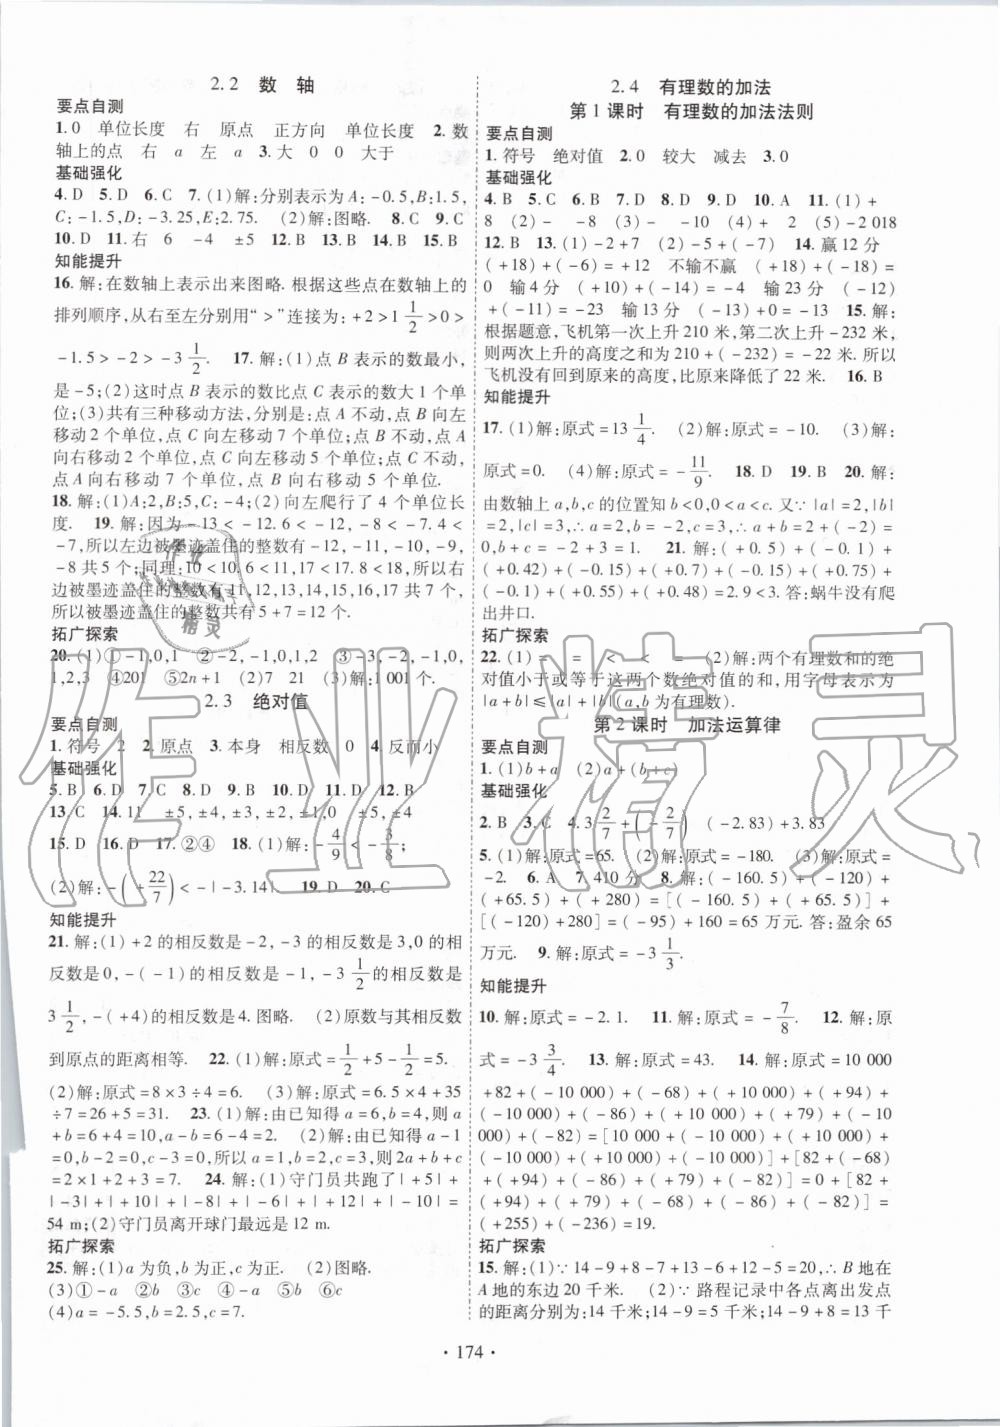 2.2 数 轴
要点自测
1.0 单位长度 右 原点 正方向 单位长度 2.数
轴上的点 右 a 左 a 3.大 0 0 大于
基础强化
4.D 5.D 6.C 7.(1)解:分别表示为A:-0.5,B:1.5,
C:-1.5,D:-3.25,E:2.75. (2)解:图略. 8.C 9.C
10.D 11.右 6 -4 ±5 12.B 13.B 14.B 15.B
知能提升
16.解:在数轴上表示出来图略.根据这些点在数轴上的
排列顺序,从右至左分别用“>”连接为:+2>1 1/2>0>
-1.5>-2>-3 1/2. 17.解:(1)点B表示的数最小,
是-5;(2)这时点B表示的数比点C表示的数大1个单
位;(3)共有三种移动方法,分别是:点A不动,点B向左
移动2个单位,点C向左移动7个单位;点B不动,点A
向右移动2个单位,点C向左移动5个单位;点C不动,
点A向右移动7个单位,点B向右移动5个单位.
18.解:(1)A:2,B:5,C:-4;(2)向左爬行了4个单位长
度. 19.解:因为-13<-12.6<-12,-8<-7.4<
-7,所以左边被墨迹盖住的整数有-12,-11,-10,-9,
-8共5个;同理:10<10.6<11,17<17.8<18,所以右
边被墨迹盖住的整数有11,12,13,14,15,16,17共7个.
所以被墨迹盖住的整数共有5+7=12个.
拓广探索
20.(1)①-1,0,1 ②-2,-1,0,1,2 ③-3,-2,-1,0,
1,2,3 ④201 ⑤2n+1 (2)7 (3)解:1 001个.
2.3 绝对值
要点自测
1.符号 2 2.原点 3.本身 相反数 0 4.反而小
基础强化
5.B 6.D 7.C 8.D 9.D 10.D 11.D 12.B
13.C 14.11 ±5,±4,±3,±2,±1,0 ±5,±4
15.D 16.D 17.②④ 18.(1)解:-4/9<-3/8;
(2)解:-(+22/7)<-|-3.14|. 19.D 20.C
知能提升
21.解:(1)+2的相反数是-2,-3的相反数是3,0的相
反数是0,-(-1)的相反数是-1,-3 1/2的相反数是
3 1/2,-(+4)的相反数是4.图略. (2)原数与其相反数
到原点的距离相等. 22.(1)解:原式=1/2+5-1/2=5.
(2)解:原式=8×3÷4=6. (3)解:原式=6.5×4+35
÷7=26+5=31. 23.(1)解:由已知得a=6,b=4,则a
+b=6+4=10,a-b=6-4=2. (2)解:由已知得a-1
=0,b-2=0,c-3=0,所以a=1,b=2,c=3,则2a+b+c
=2×1+2+3=7. 24.解:(1)守门员共跑了|+5|+
|-3|+|+10|+|-8|+|-6|+|+12|+|-10|=
54 m;(2)守门员离开球门最远是12 m.
拓广探索
25.解:(1)a为负,b为正,c为正. (2)图略.
(3)①-a ②b ③c ④-a ⑤b ⑥c
(4)a=-5.5,b=2.5,c=7.
2.4 有理数的加法
第1课时 有理数的加法法则
要点自测
1.符号 绝对值 2.0 较大 减去 3.0
基础强化
4.B 5.C 6.B 7.D 8.D 9.D 10.A 11.(1)+
8 (2)- -8 (3)- -10 (4)+ 2 (5)-2 018
12.B 13.(1)-2+7 (2)-5+(-7) 14.赢12分
(+18)+(-6)=+12 不输不赢 (+18)+(-18)=
0 输4分 (+10)+(-14)=-4 输23分 (-12)
+(-11)=-23 输13分 (-13)+0=-13 15.解:
根据题意,飞机第一次上升210米,第二次上升-232米,
则两次上升的高度之和为210+(-232)=-22米.所以
飞机没有回到原来的高度,比原来降低了22米. 16.B
知能提升
17.(1)解:原式=13 1/4. (2)解:原式=-10. (3)解:
原式=0. (4)解:原式=-11/9. 18.D 19.B 20.解:
由数轴上a,b,c的位置知b<0,0<a<c.又∵|a|=2,|b|
=2,|c|=3,∴a=2,b=-2,c=3,∴a+b=2+(-2)=
0,b+c=-2+3=1. 21.解:(+0.5)+(-0.1)+
(+0.42)+(-0.15)+(+0.7)+(-0.15)+(+0.75)+
(-0.1)+(+0.55)+(+0.48)=2.9<3.答:蜗牛没有爬
出井口.
拓广探索
22.(1)= = = < < = (2)解:两个有理数和的绝
对值小于或等于这两个数绝对值的和,用字母表示为
|a+b|≤|a|+|b|(a,b为有理数).
第2课时 加法运算律
要点自测
1.(1)b+a (2)a+(b+c)
基础强化
2.B 3.C 4.3 2/7+(-2/7) (-2.83)+3.83
5.(1)解:原式=65. (2)解:原式=-180. (3)解:原式=
-2. 6.A 7.410分 8.解:(-160.5)+(-120)+
(+65.5)+(+280)=[(-160.5)+(+65.5)]+
[(-120)+280]=(-95)+160=65万元.答:盈余65
万元. 9.解:原式=-3 1/3.
知能提升
10.解:原式=-2.1. 11.解:原式=-7/8. 12.解:原
式=-3 3/4. 13.解:原式=43. 14.解:原式=10 000
+82+(-10 000)+(-68)+(+10 000)+(+94)+
(-10 000)+(-86)+(+10 000)+(+79)+(-10
000)+(-82)=[10 000+(-10 000)+(+10 000)+
(-10 000)+(+10 000)+(-10 000)]+[82+(-68)
+(+94)+(-86)+(+79)+(-82)]=0+[82+
(+94)+(+79)+(-68)+(-86)+(-82)]=
(+255)+(-236)=19.
拓广探索
15.解:(1)∵14-9+8-7+13-6+12-5=20,∴B地在
A地的东边20千米. (2)∵路程记录中各点离出发点
的距离分别为:14千米;14-9=5千米;14-9+8=13千
·174·
作业精灵
作业
精灵